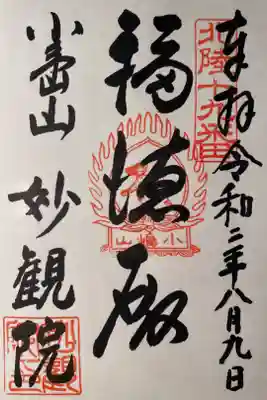 奉拝 令和二年八月九日
北陸十九番
福徳殿
小嶋山
小嶌山 妙観院